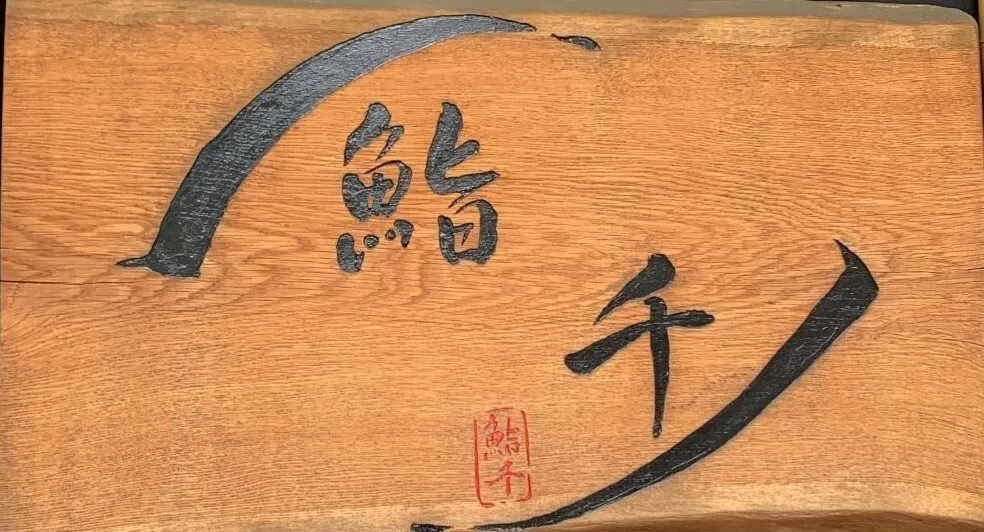 鮨
千
鮨千